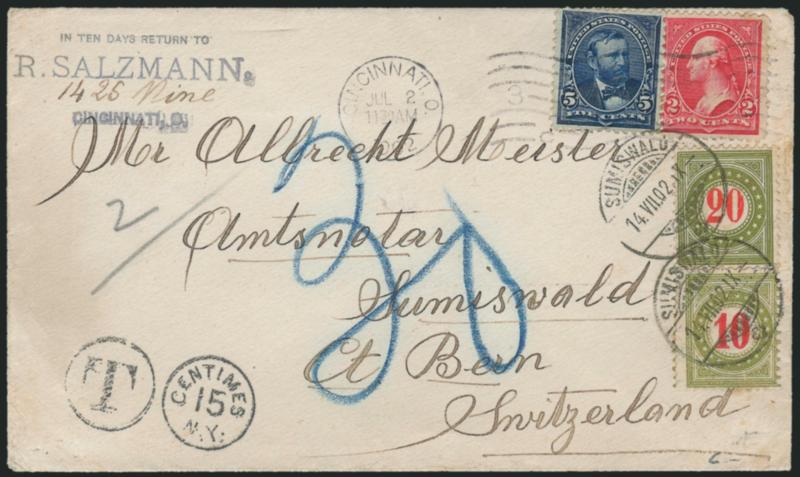 IN TEN DAYS RETURN TO
R. SALZMANN,
1425 Vine
CINCINNATI, O.
CINCINNATI, O.
JUL 2
1130AM
3
UNITED STATES POSTAGE
5 5
FIVE CENTS
2 2
TWO CENTS
Mr Albrecht Meister
Amtsnotar
Sumiswald
Ct Bern
Switzerland
2
30
SUMISWALD
14.VII.02.IX
20
SUMISWALD
14.VII.02.IX
10
T
CENTIMES
15
N.Y.